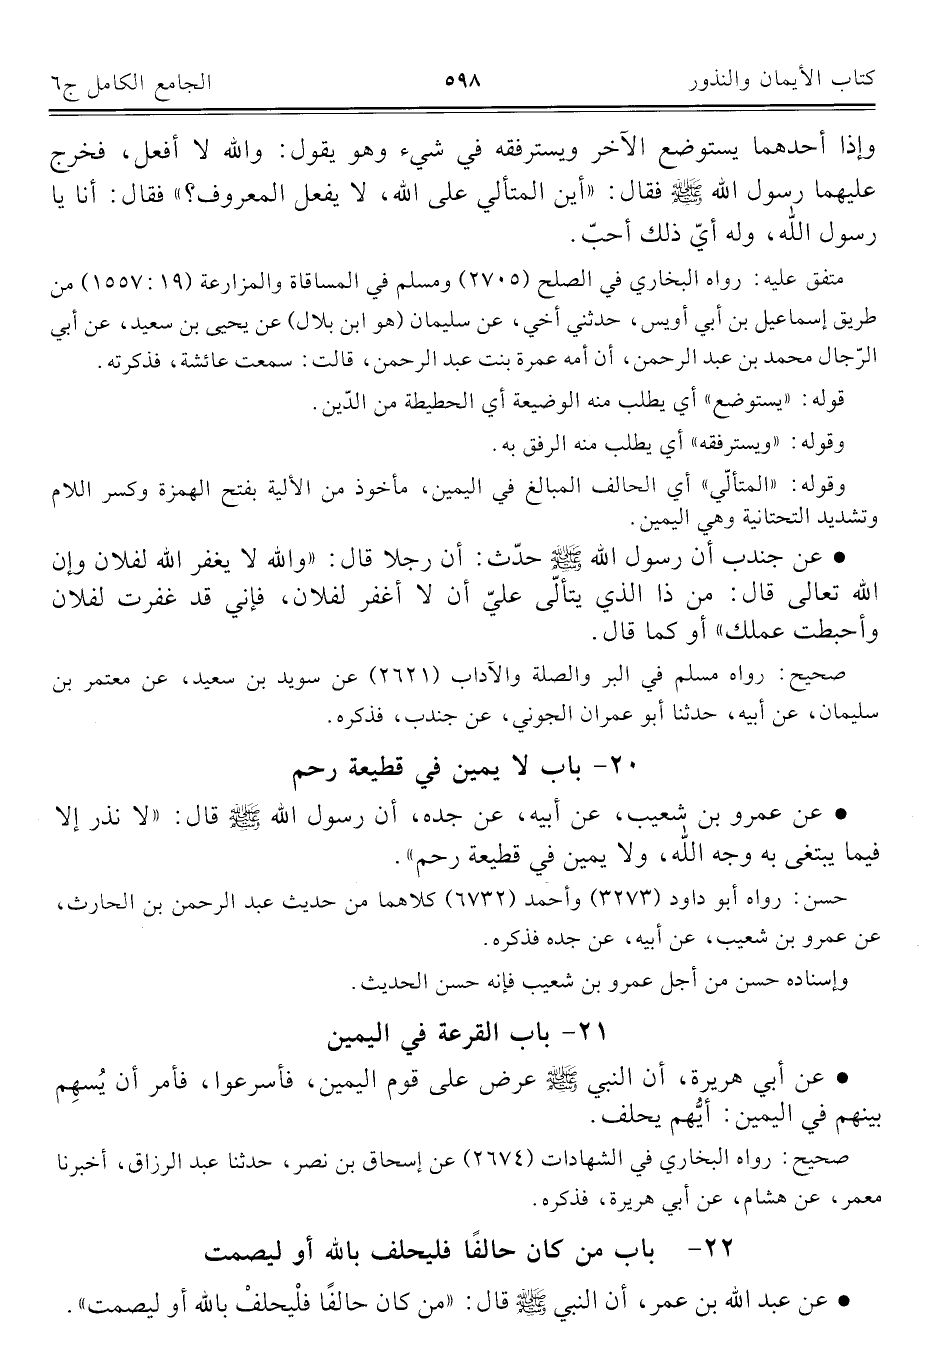 كتاب الأيمان والنذور ٥٩٨ الجامع الكامل ج٦
وإذا أحدهما يستوضع الآخر ويسترفقه في شيء وهو يقول: والله لا أفعل، فخرج
عليهما رسول الله ﷺ فقال: «أين المتألي على الله، لا يفعل المعروف؟» فقال: أنا يا
رسول الله، وله أيّ ذلك أحبّ.
متفق عليه: رواه البخاري في الصلح (٢٧٠٥) ومسلم في المساقاة والمزارعة (١٩: ١٥٥٧) من
طريق إسماعيل بن أبي أويس، حدثني أخي، عن سليمان (هو ابن بلال) عن يحيى بن سعيد، عن أبي
الرّجال محمد بن عبد الرحمن، أن أمه عمرة بنت عبد الرحمن، قالت: سمعت عائشة، فذكرته.
قوله: «يستوضع» أي يطلب منه الوضيعة أي الحطيطة من الدّين.
وقوله: «ويسترفقه» أي يطلب منه الرفق به.
وقوله: «المتألّي» أي الحالف المبالغ في اليمين، مأخوذ من الألية بفتح الهمزة وكسر اللام
وتشديد التحتانية وهي اليمين.
• عن جندب أن رسول الله ﷺ حدّث: أن رجلا قال: «والله لا يغفر الله لفلان وإن
الله تعالى قال: من ذا الذي يتألّى عليّ أن لا أغفر لفلان، فإني قد غفرت لفلان
وأحبطت عملك» أو كما قال.
صحيح: رواه مسلم في البر والصلة والآداب (٢٦٢١) عن سويد بن سعيد، عن معتمر بن
سليمان، عن أبيه، حدثنا أبو عمران الجوني، عن جندب، فذكره.
٢٠- باب لا يمين في قطيعة رحم
• عن عمرو بن شعيب، عن أبيه، عن جده، أن رسول الله ﷺ قال: «لا نذر إلا
فيما يبتغى به وجه الله، ولا يمين في قطيعة رحم».
حسن: رواه أبو داود (٣٢٧٣) وأحمد (٦٧٣٢) كلاهما من حديث عبد الرحمن بن الحارث،
عن عمرو بن شعيب، عن أبيه، عن جده فذكره.
وإسناده حسن من أجل عمرو بن شعيب فإنه حسن الحديث.
٢١- باب القرعة في اليمين
• عن أبي هريرة، أن النبي ﷺ عرض على قوم اليمين، فأسرعوا، فأمر أن يُسهِم
بينهم في اليمين: أيُّهم يحلف.
صحيح: رواه البخاري في الشهادات (٢٦٧٤) عن إسحاق بن نصر، حدثنا عبد الرزاق، أخبرنا
معمر، عن هشام، عن أبي هريرة، فذكره.
٢٢- باب من كان حالفًا فليحلف بالله أو ليصمت
• عن عبد الله بن عمر، أن النبي ﷺ قال: «من كان حالفًا فلْيحلفْ بالله أو ليصمت».